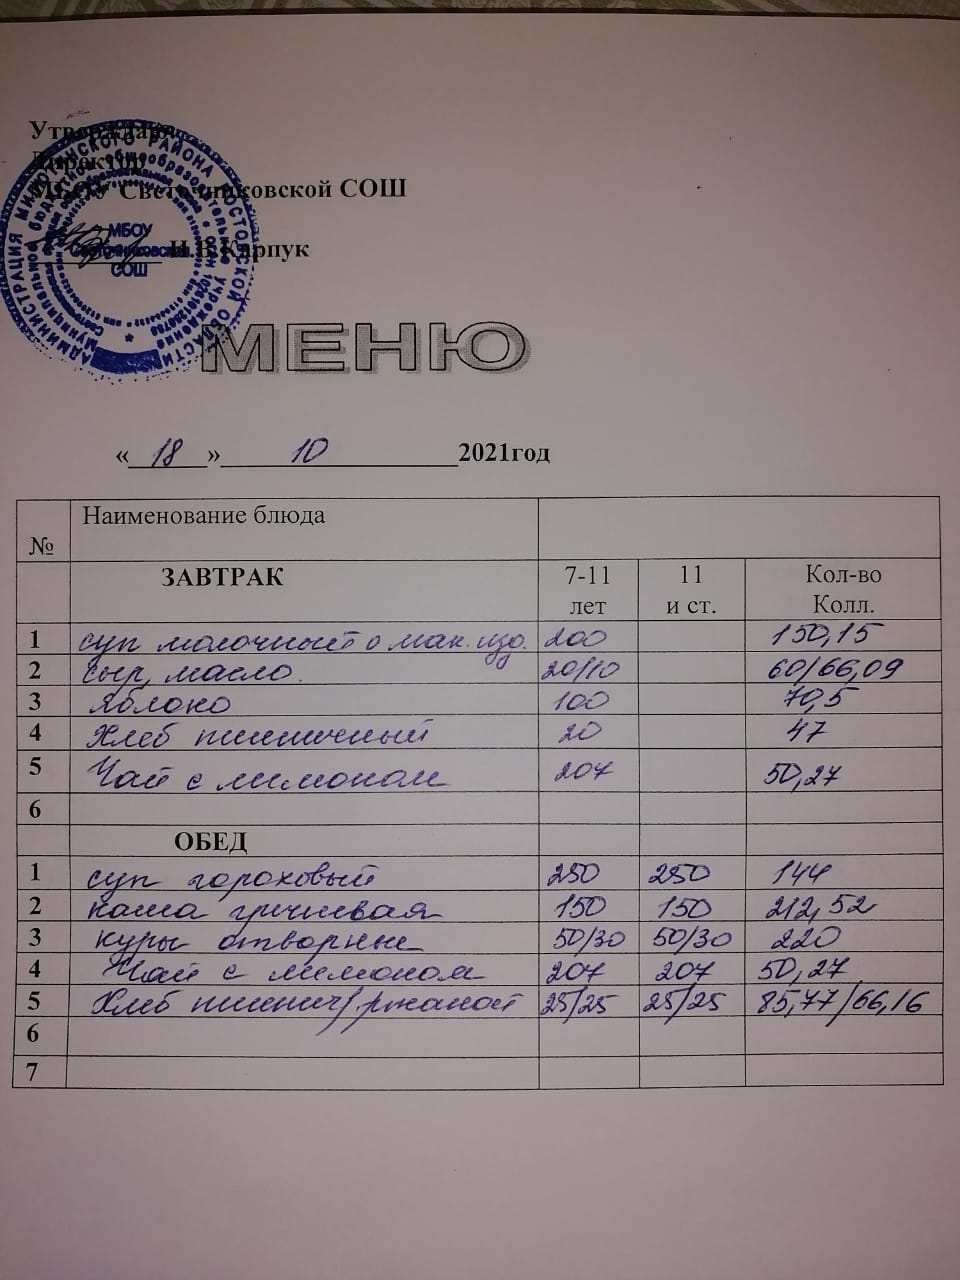 Утверждаю
Директор
МБОУ Светочниковской СОШ
Н.В.Карпук
АДМИНИСТРАЦИЯ МИЛЮТИНСКОГО РАЙОНА РОСТОВСКОЙ ОБЛАСТИ
МБОУ
Светочниковская
СОШ
МЕНЮ
« 18 » 10 2021год
№ Наименование блюда
ЗАВТРАК 7-11 лет 11 и ст. Кол-во Колл.
1 суп молочный с мак. изд. 200 150,15
2 сыр, масло. 20/10 60/66,09
3 яблоко 100 70,5
4 Хлеб пшеничный 20 47
5 Чай с лимоном 207 50,27
6
ОБЕД
1 суп гороховый 250 250 144
2 каша гречневая 150 150 212,52
3 куры отворные 50/30 50/30 220
4 Чай с лимоном 207 207 50,27
5 Хлеб пшенич/ржаной 25/25 25/25 85,77/66,16
6
7